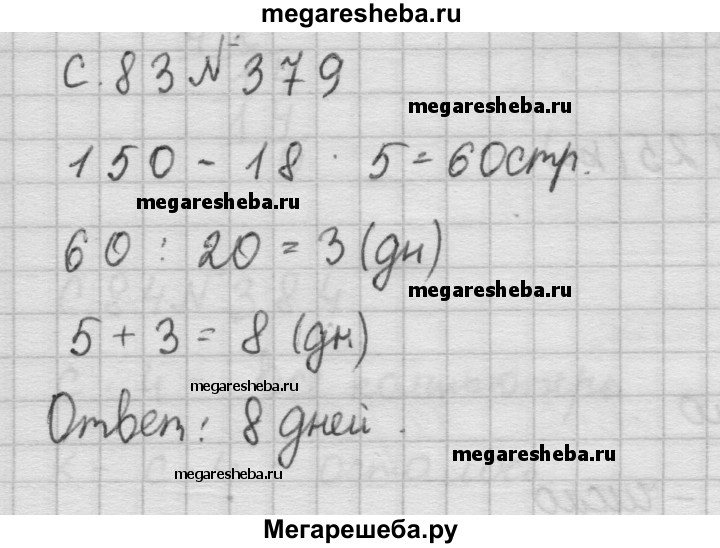 megaresheba.ru
С. 83 № 379
megaresheba.ru
150 - 18 · 5 = 60 стр.
megaresheba.ru
60 : 20 = 3 (дн)
megaresheba.ru
5 + 3 = 8 (дн)
megaresheba.ru
Ответ: 8 дней.
megaresheba.ru
megaresheba.ru
Мегарешеба.ру